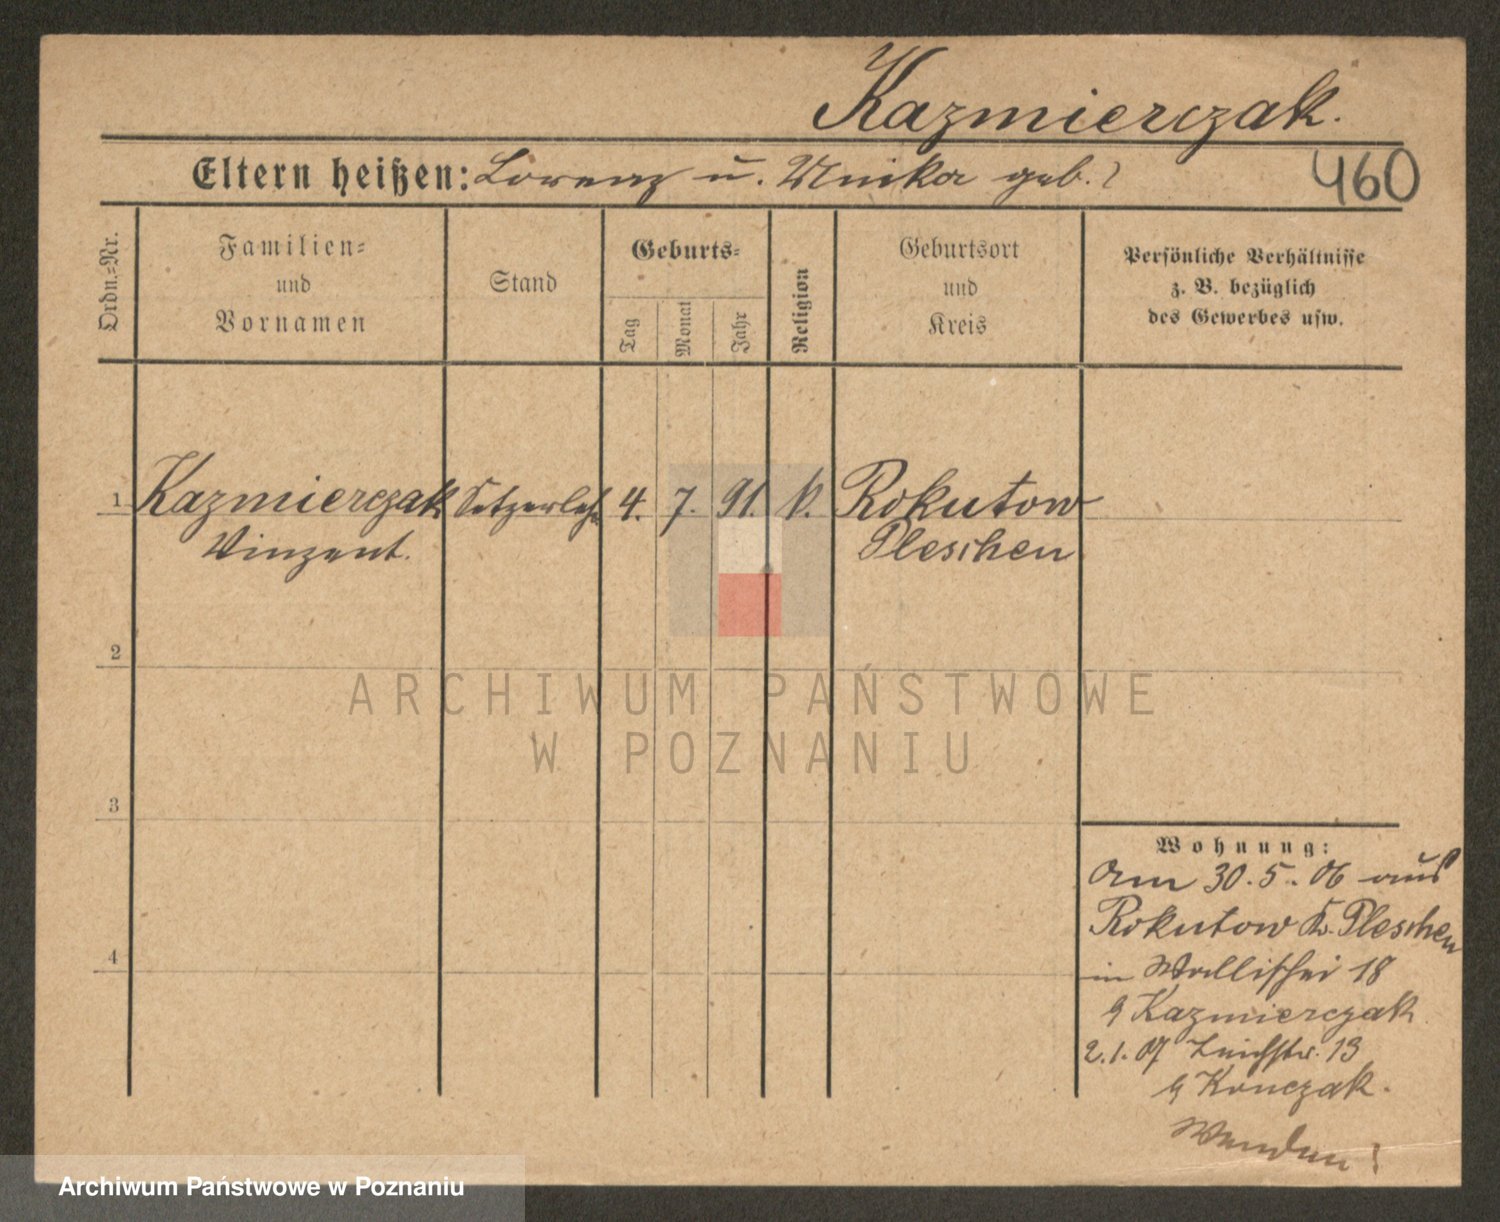 Kazmierczak.
Eltern heißen: Lorenz u. Unika geb. ?
460
Ordn.=Nr.
Familien=
und
Vornamen
Stand
Geburts=
Tag
Monat
Jahr
Religion
Geburtsort
und
Kreis
Persönliche Verhältnisse
z. B. bezüglich
des Gewerbes usw.
1 Kazmierczak Setzerlehr. 4. 7. 91. k. Rokutow
Vinzent. Pleschen
2
3
4
Wohnung:
Am 30.5.06 aus
Rokutow Kr. Pleschen
in Wallischei 18
Kazmierczak
2.1.07 13
Konczak.
Wenden!
ARCHIWUM PAŃSTWOWE
W POZNANIU
Archiwum Państwowe w Poznaniu